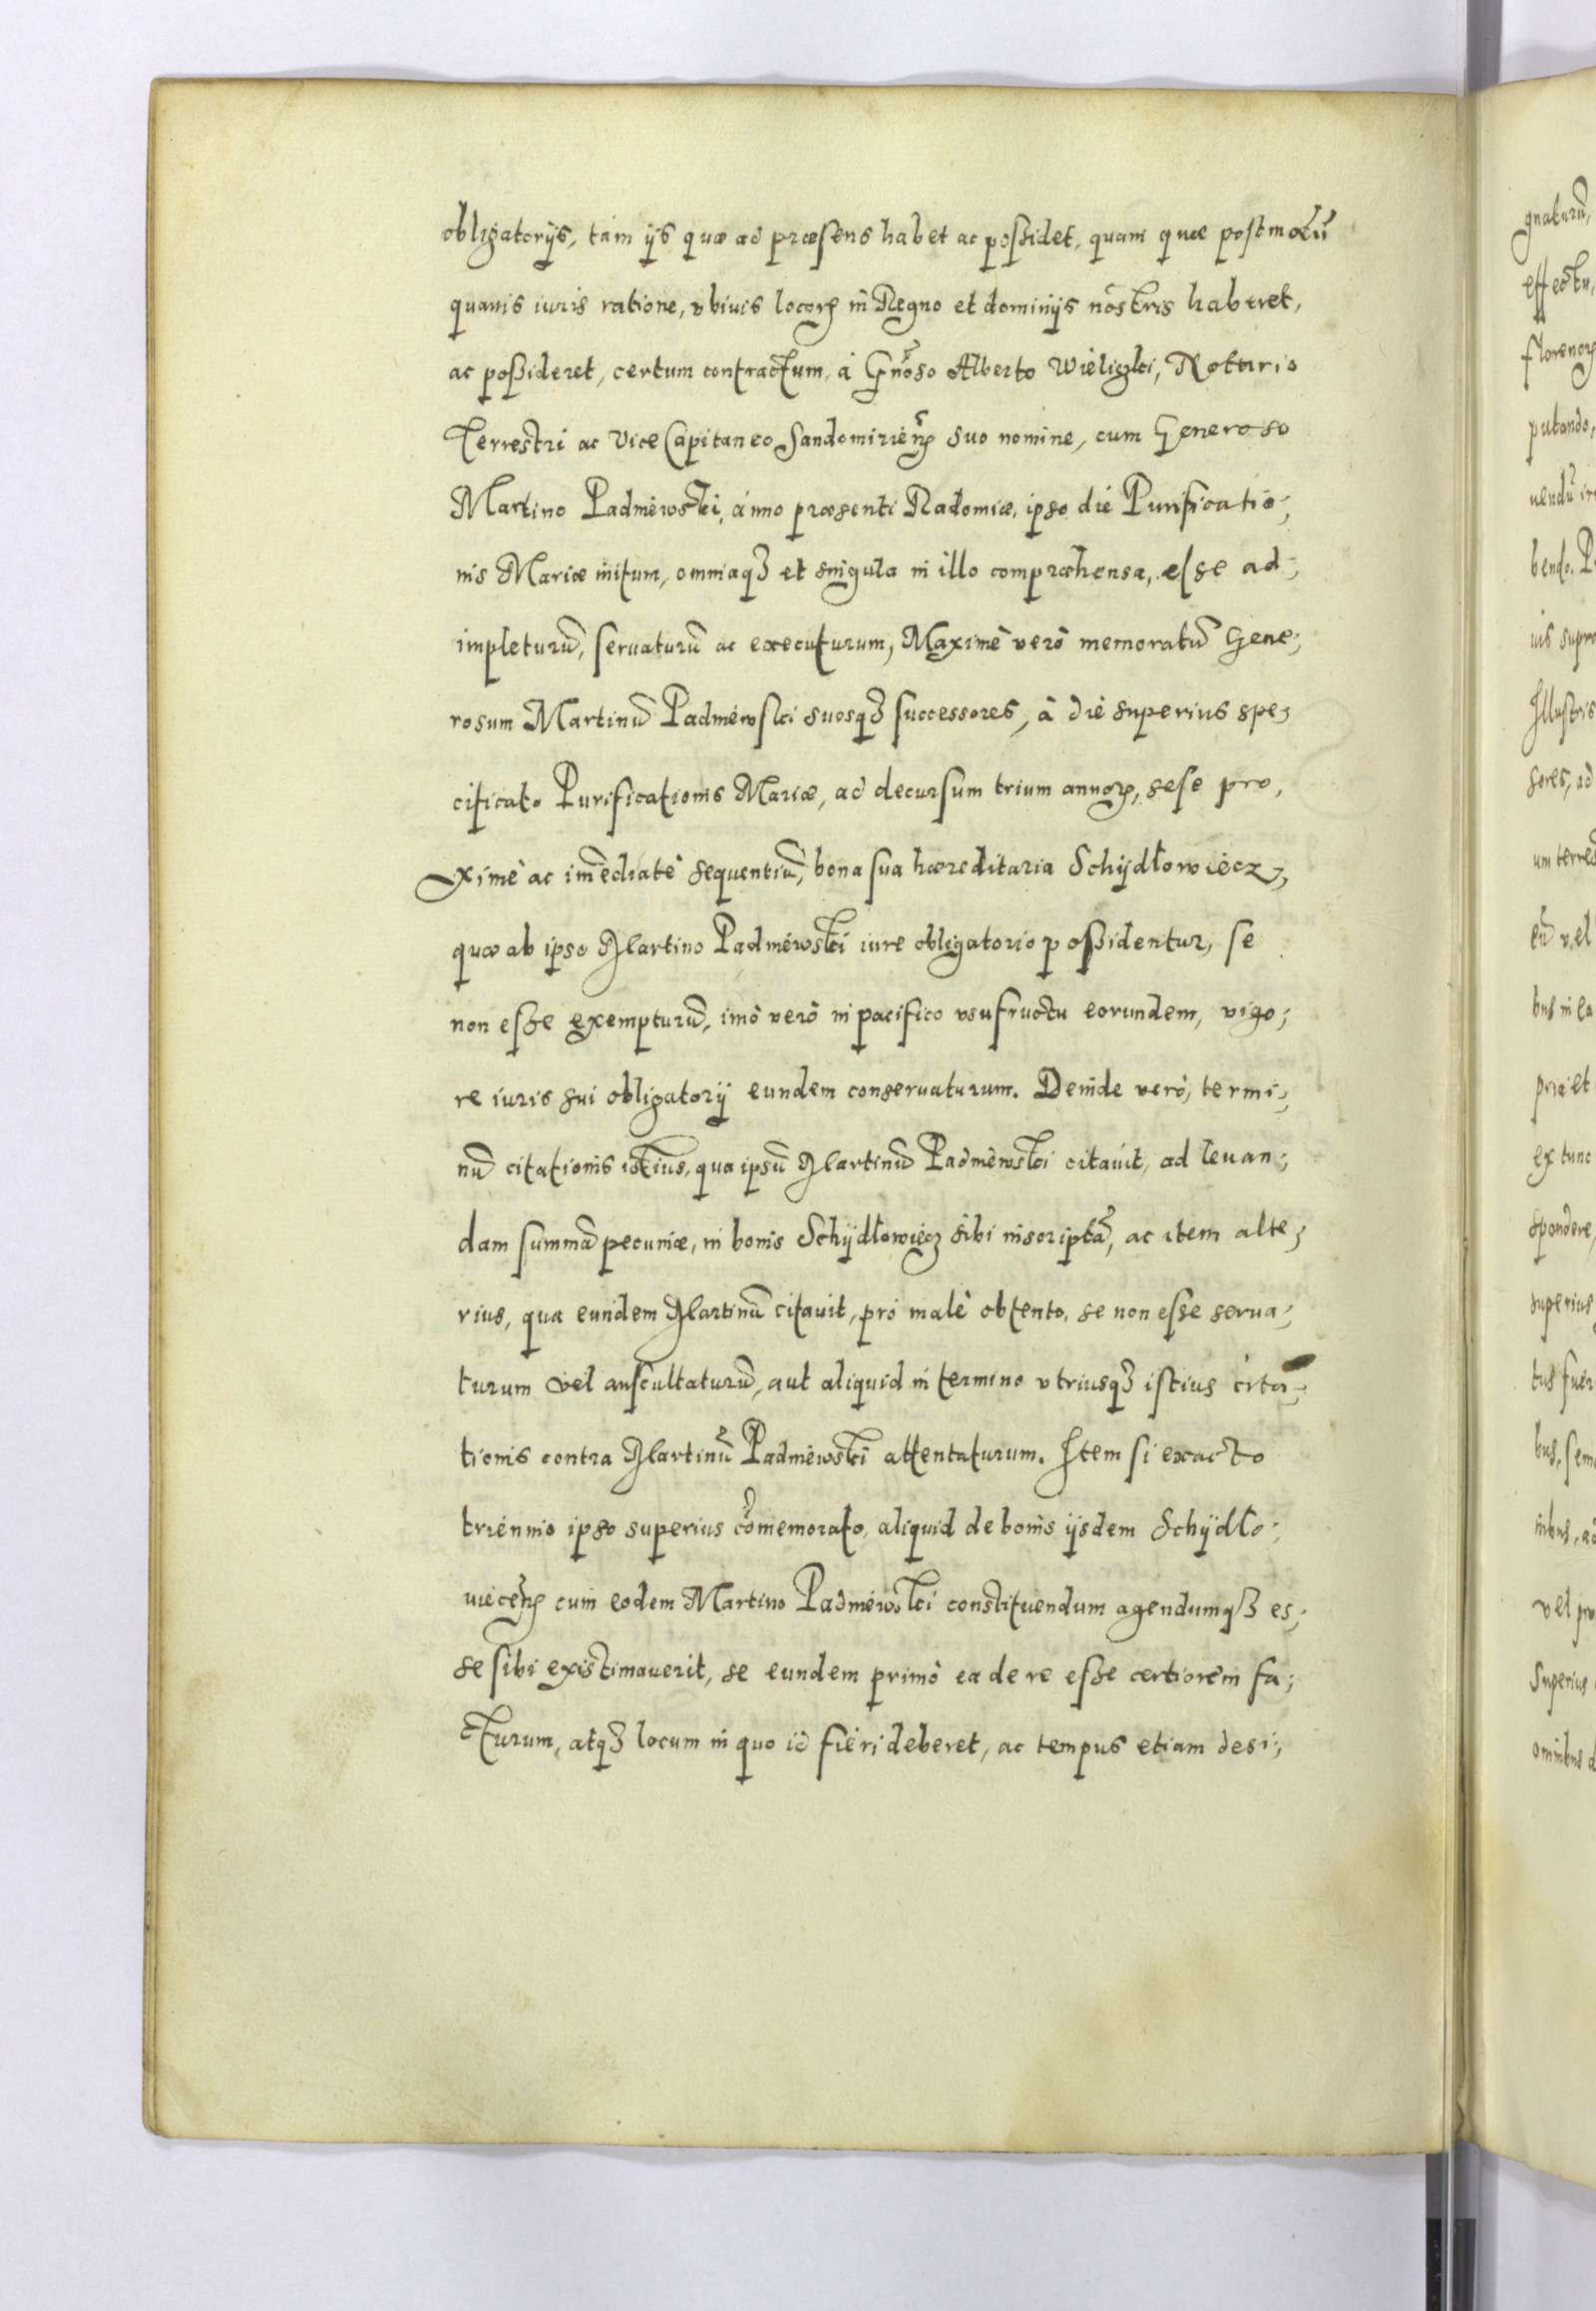 obligatorijs, tam ijs quæ ad præsens habet ac poßidet, quam quæ postmodū
quauis iuris ratione, vbiuis locoꝝ in Regno et dominijs nostris haberet,
ac poßideret, certum contractum, à Gnōso Alberto Wieliczki, Notario
Terrestri ac Vice Capitaneo Sandomirieñ suo nomine, cum Generoso
Martino Padniewski, anno præsenti Radomiæ, ipso die Purificatio;
nis Mariæ initum, omniaqꝫ et singula in illo compræhensa, esse ad;
impleturū, seruaturū ac executurum, Maximè verò memoratū Gene;
rosum Martinū Padniewski suosqꝫ successores, à die superius spe;
cificato Purificationis Mariæ, ad decursum trium annoꝝ, sese pro,
ximè ac im̄ediatè sequentiū, bona sua hæreditaria Schÿdłowiecz,
quæ ab ipso Martino Padniewski iure obligatorio poßidentur, se
non esse exempturū, imò verò in pacifico vsufructu eorundem, vigo;
re iuris sui obligatorij eundem conseruaturum. Deinde verò, termi;
nū citationis istius, qua ipsū Martinū Padniewski citauit, ad leuan;
dam summā pecuniæ, in bonis Schÿdłowiecz sibi inscriptā, ac item alte;
rius, qua eundem Martinū citauit, pro malè obtento, se non esse serua;
turum vel auscultaturū, aut aliquid in termino vtriusqꝫ istius cita;
tionis contra Martinū Padniewski attentaturum. Item si exacto
triennio ipso superius cōmemorato, aliquid de bonis ijsdem Schÿdło;
vieceñ cum eodem Martino Padniewski constituendum agendumqꝫ es;
se sibi existimauerit, se eundem primò ea de re esse certiorem fa;
cturum, atqꝫ locum in quo id fieri deberet, ac tempus etiam desi;